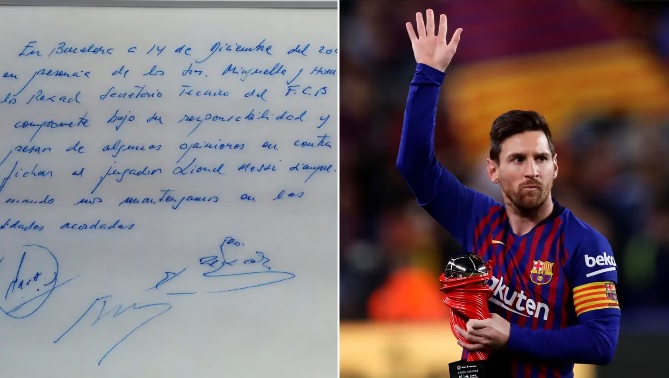 En Barcelona a 14 de Diciembre del 20
en presencia de los Sres. Minguella y Hora
Rexach Secretario Tecnico del F.C.B
compromete bajo su responsabilidad y
pesar de algunas opiniones en contra
fichar al jugador Lionel Messi siempre
nos mantengamos en las
tidades acordadas
beko
kuten